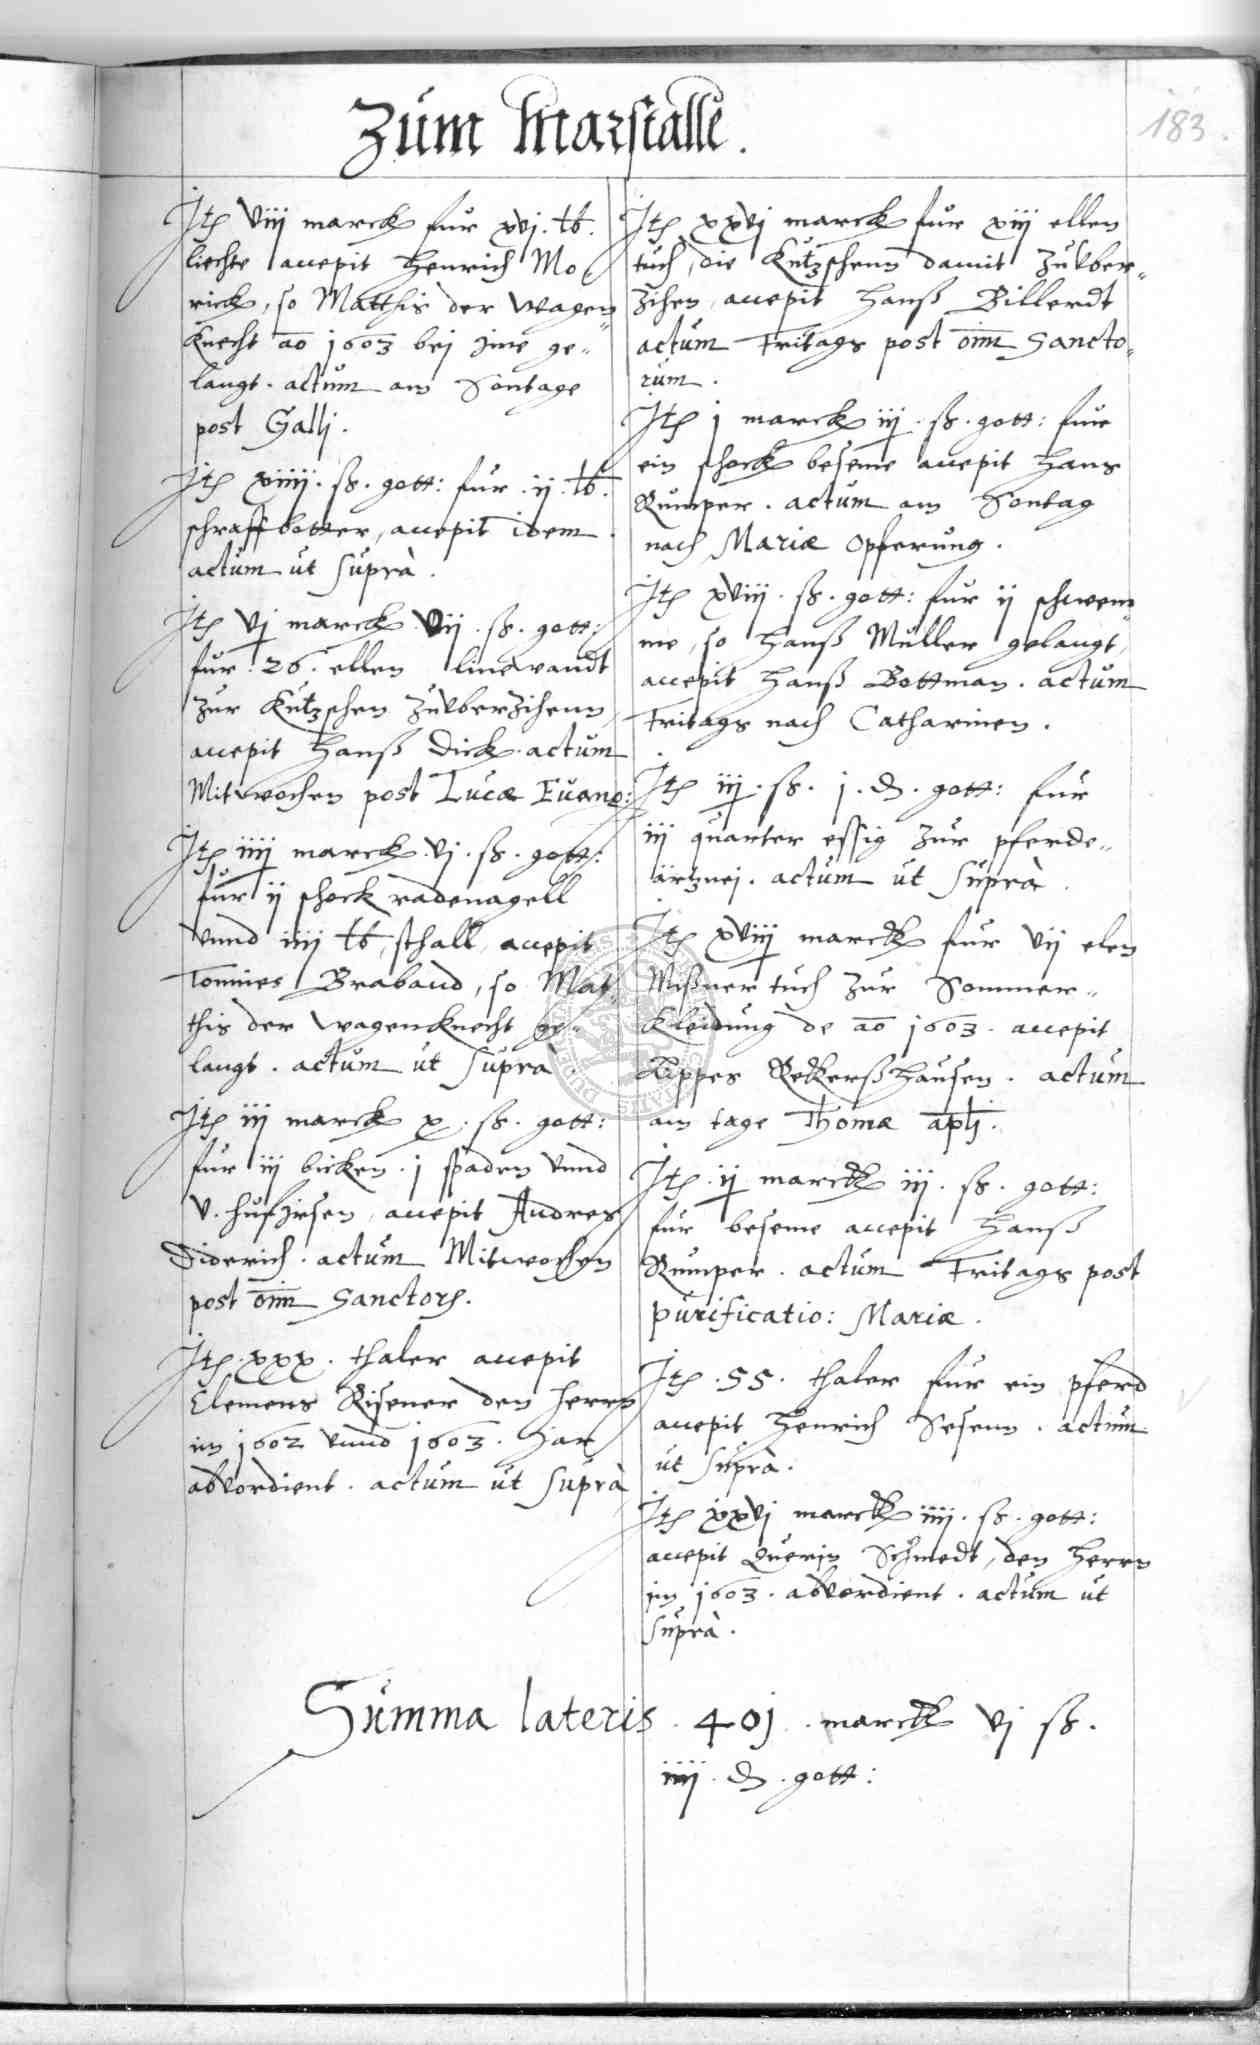 Zum Marstalle.
183.
Itẽ viij marck fur xvj. ℔.
liechte accepit Henrich Mo
rick, so Matthis der wagen
knecht aō 1603 bej ime ge„
langt. actum am Sontage
post Galli.
Itẽ xiiij. ß. gott: fur. ij. ℔.
accepit idem
actum ut suprà.
Itẽ vj marck vij. ß. gott:
fur. 26. ellen linewandt
zur Kutzschen zuvberzihenn,
accepit Hanß Dick. actum
Mitwochen post Lucæ Euang:
Itẽ iiij marck. vj. ß. gott:
fur ij schock radenagell
vnnd iiij ℔, sthall, accepit
Tonnies Braband, so Mat„
this der wagenknecht ge„
langt. actum ut suprà
Itẽ iij marck x. ß. gott:
fur iij bicken. j spaden vnnd
v. hufjsen, accepit Andres
Diderich. actum Mitwochen
post oīm Sanctorũ.
Itẽ. xxx. thaler accepit
Clemens Risener den herrn
im 1602 vnnd 1603. Jar
abvordient. actum ut suprà
Itẽ xxvj marck fur xiij ellen
tuch, die Kutzschenn damit zuvber„
zihen, accepit Hanß Billerdt
actum Fritags post oīm Sancto„
rum.
Itẽ j marck iij. ß. gott: fur
ein schock beseme accepit Hans
Rumper. actum am Sontag
nach Mariæ Opfferung.
Itẽ xviij. ß. gott: fur ij schwem„
me, so Hanß Müller gelangt,
accepit Hanß Bottman. actum
Fritags nach Catharinen.
Itẽ iij. ß. j. ₰. gott: fur
iij quarter essig zur pferde„
ärtznej. actum ut suprà.
Itẽ xviij marck fur vij elen
Mißner tuch zur Sommer„
Kleidung de aō 1603. accepit
Lippes Rekerßhausen. actum
am tage Thomæ apłj.
Itẽ. ij marck iij. ß. gott:
fur beseme accepit Hanß
Rumper. actum Fritags post
purificatio: Mariæ.
Itẽ. 55. thaler fur ein pferd
accepit Henrich Sesenn. actum
ut suprà.
Itẽ xxvj marck iiij. ß. gott:
accepit Querin Schmedt, den herrn
im 1603. abvordient. actum ut
suprà.
Summa lateris. 40j. marck vj ß.
iiij. ₰. gott: